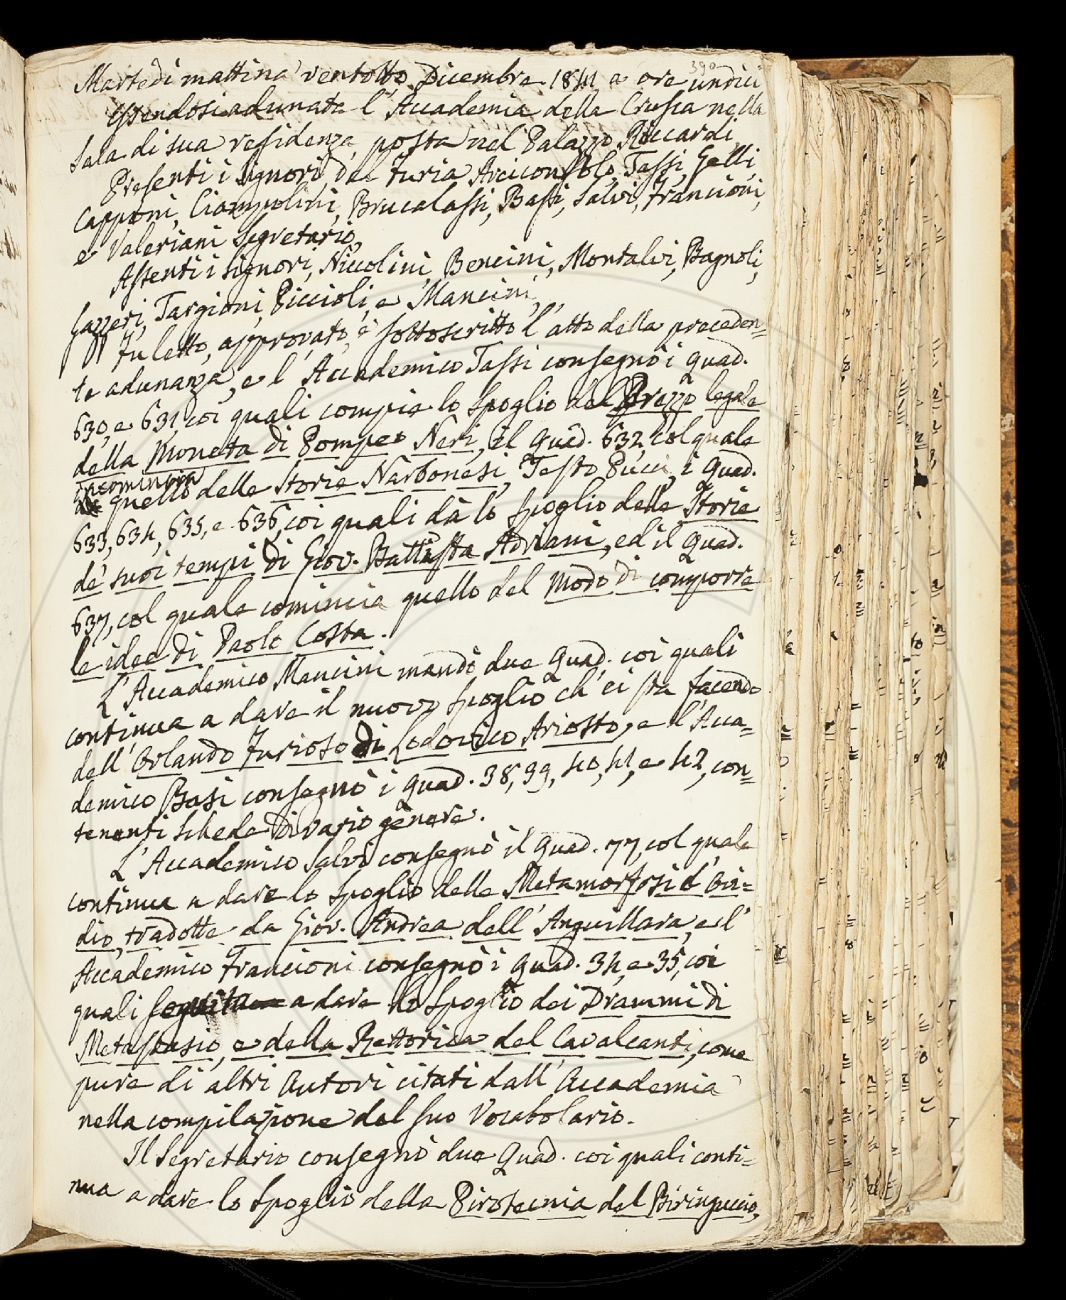 390
Martedì mattina ventotto Dicembre 1841 a ore undici
essendosi adunata l'Accademia della Crusca nella
Sala di sua residenza posta nel Palazzo Riccardi
Presenti i signori Del Furia Arciconsolo, Tassi, Gelli
Capponi, Ciampolini, Brucalassi, Basi, Salvi, Francioni,
e Valeriani Segretario,
Assenti i signori, Niccolini, Bencini, Montalvi, Bagnoli,
Gazzeri, Targioni, Piccioli, e Mancini,
Fu letto, approvato, e sottoscritto l'atto della preceden=
te adunanza, e l'Accademico Tassi consegnò i Quad.
630, e 631 coi quali compie lo spoglio del Prezzo legale
della Moneta di Pompeo Neri, il Quad. 632 col quale
incomincia
quello delle Storie Narbonesi, Testo Pucci, i Quad.
633, 634, 635, e 636, coi quali dà lo spoglio delle Storie
de' suoi tempi di Giov. Battista Adriani, ed il Quad.
637, col quale comincia quello del Modo di comporre
le idee di Paolo Costa.
L'Accademico Mancini mandò due Quad. coi quali
continua a dare il nuovo spoglio ch'ei sta facendo
dell'Orlando Furioso di Lodovico Ariosto, e l'Acca=
demico Basi consegnò i Quad. 38, 39, 40, 41, e 42, con=
tenenti schede di vario genere.
L'Accademico Salvi consegnò il Quad. 77, col quale
continua a dare lo spoglio delle Metamorfosi d'Ovi=
dio, tradotte da Giov. Andrea dell'Anguillara, e l'
Accademico Francioni consegnò i Quad. 34, e 35, coi
quali seguita a dare lo spoglio dei Drammi di
Metastasio, e della Rettorica del Cavalcanti, come
pure di altri Autori citati dall'Accademia
nella compilazione del suo Vocabolario.
Il Segretario consegnò due Quad. coi quali conti=
nua a dare lo spoglio della Pirotecnia del Biringuccio,